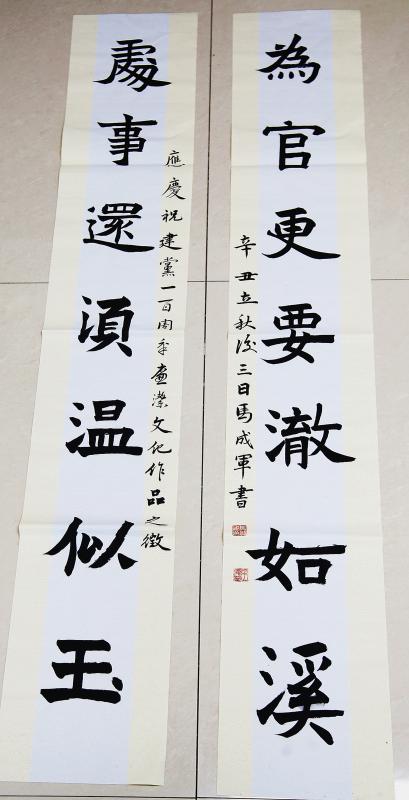 為官更要澈如溪
辛丑立秋後三日馬成軍書
應慶祝建黨一百周秊廉潔文化作品之徵
處事還須温似玉